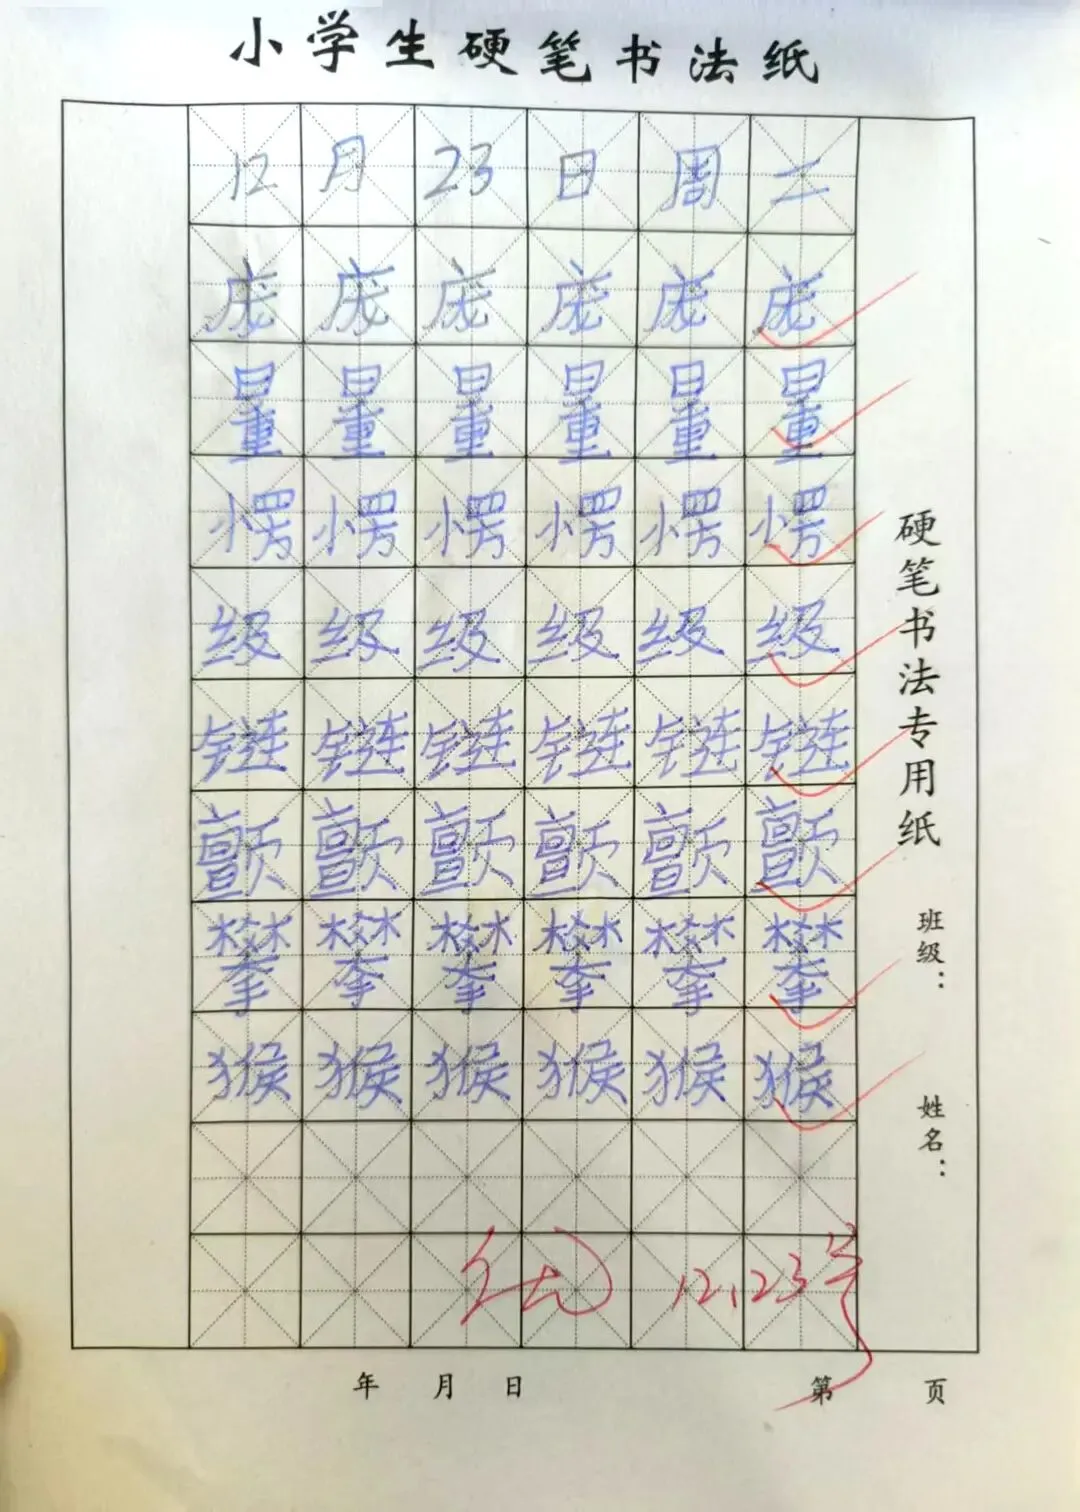 小学生硬笔书法纸
12月23日周二
庞庞庞庞庞庞
量量量量量量
愣愣愣愣愣愣
级级级级级级
链链链链链链
颤颤颤颤颤颤
攀攀攀攀攀攀
猴猴猴猴猴猴
优 12.23号
硬笔书法专用纸
班级：
姓名：
年 月 日 第 页